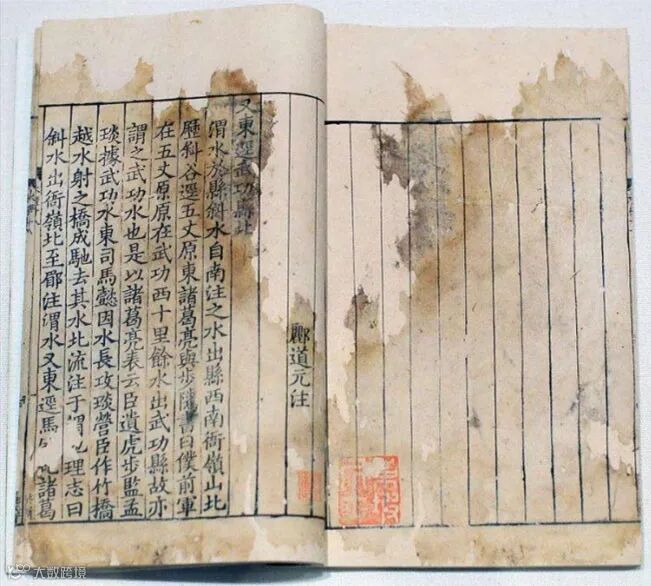 酈道元注
又東逕武功縣北
渭水於縣斜水自南注之水出縣西南衙嶺山北
歷斜谷逕五丈原東諸葛亮與步隲書曰僕前軍
在五丈原原在武功西十里餘水出武功縣故亦
謂之武功水也是以諸葛亮表云臣遣虎步監孟
琰據武功水東司馬懿因水長攻琰營臣作竹橋
越水射之橋成馳去其水北流注于理志曰
斜水出衙嶺北至郿注渭水又東逕馬諸葛
大数跨境